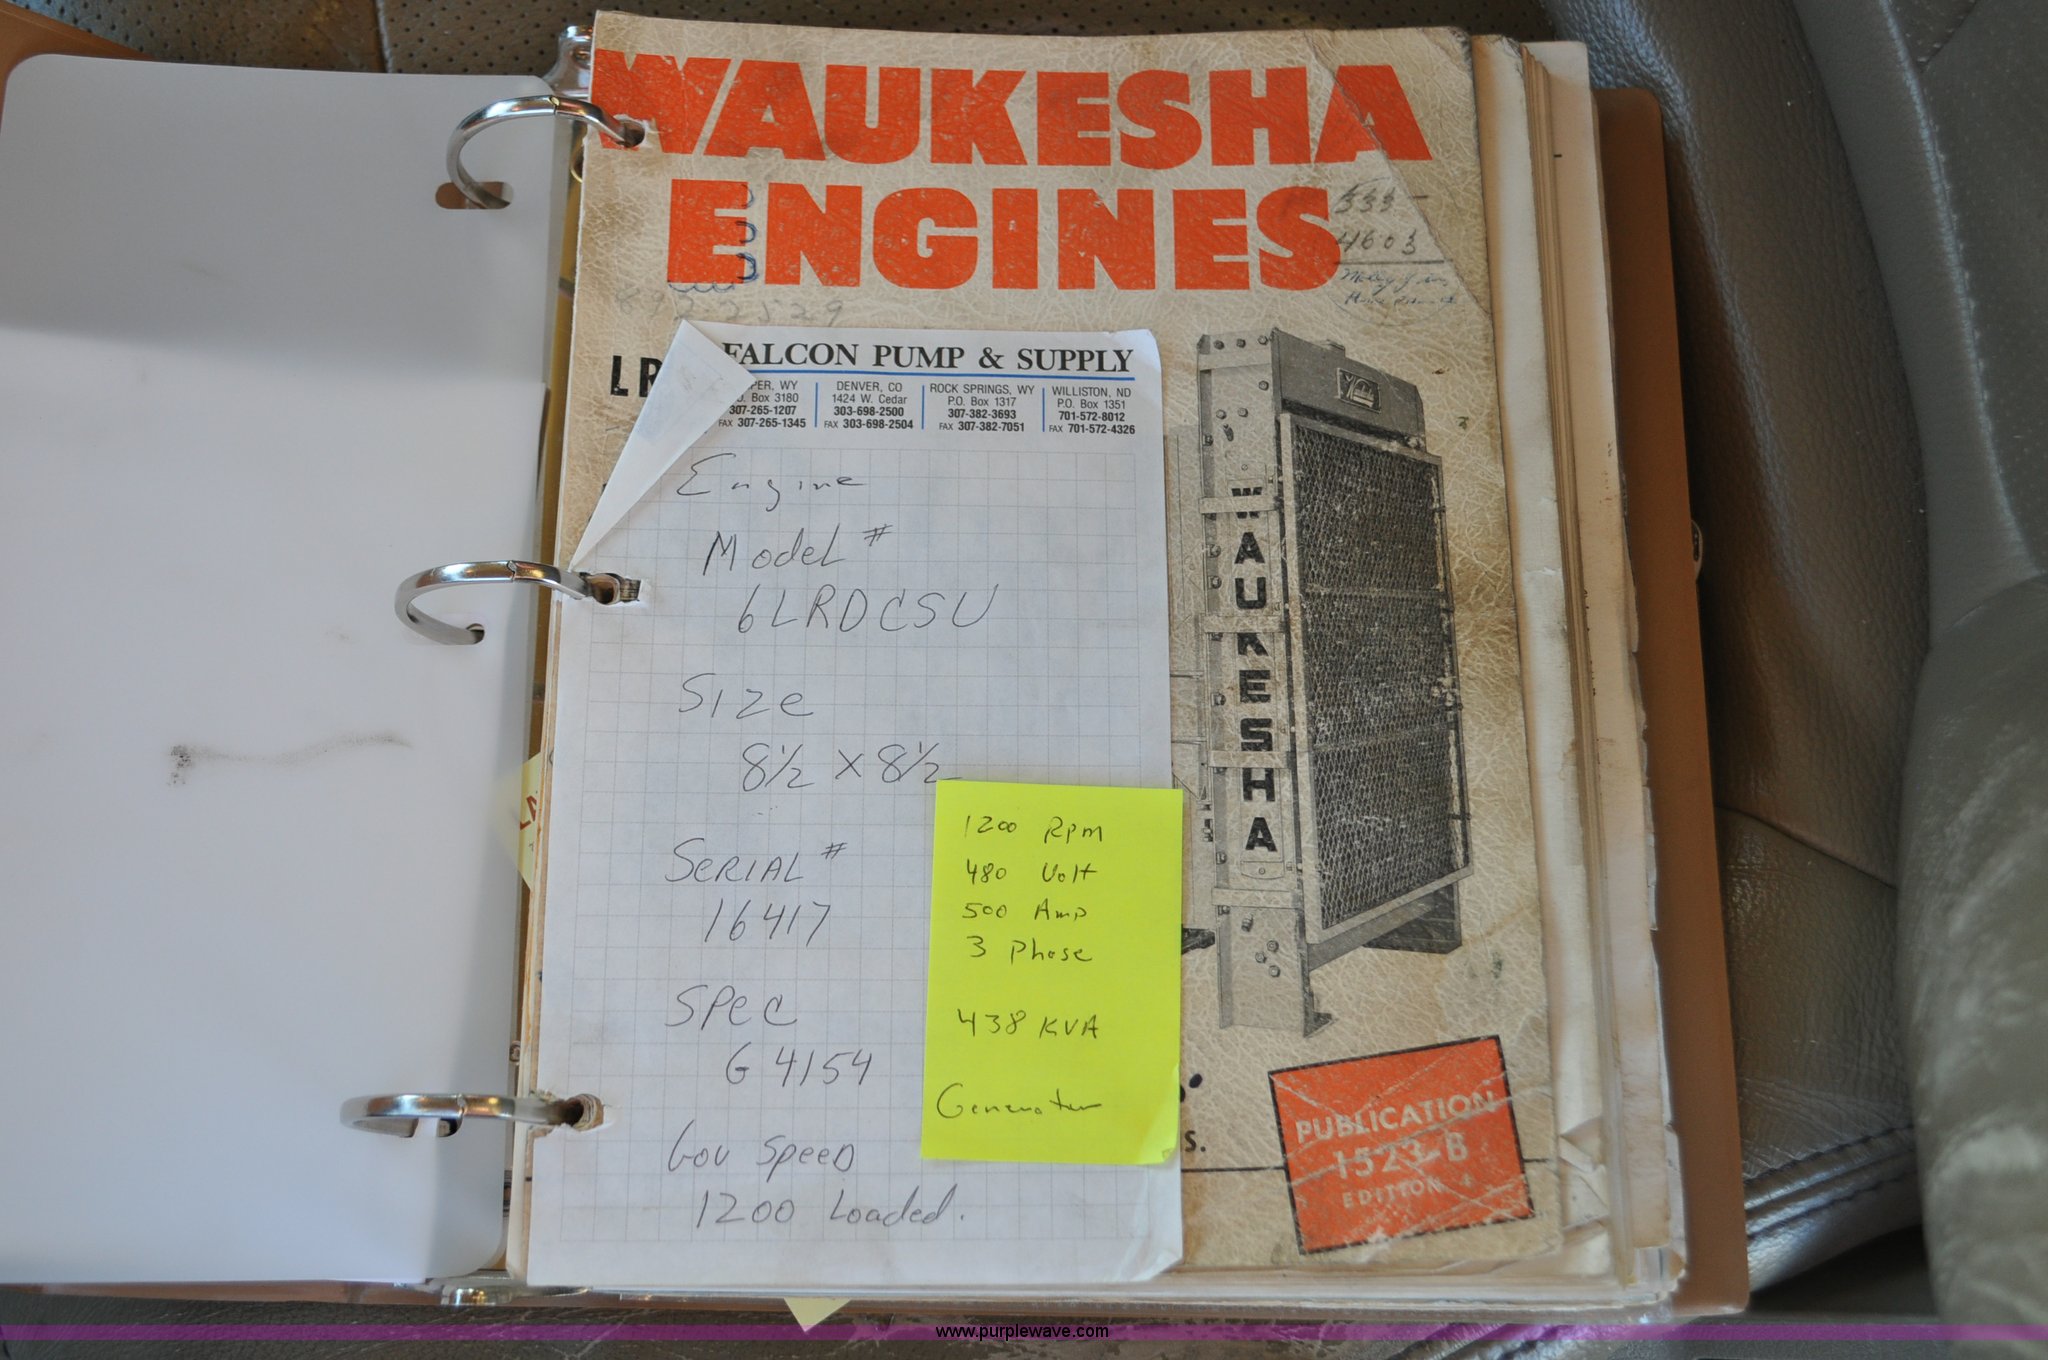 WAUKESHA
ENGINES
333-
4603
892-2529
LR
FALCON PUMP & SUPPLY
PER, WY
O. Box 3180
307-265-1207
FAX 307-265-1345
DENVER, CO
1424 W. Cedar
303-698-2500
FAX 303-698-2504
ROCK SPRINGS, WY
P.O. Box 1317
307-382-3693
FAX 307-382-7051
WILLISTON, ND
P.O. Box 1351
701-572-8012
FAX 701-572-4326
Engine
Model #
6LRDCSU
Size
8 1/2 X 8 1/2
SERIAL #
16417
SPEC
G 4154
Gov SPEED
1200 Loaded.
1200 Rpm
480 Volt
500 Amp
3 Phase
438 KVA
Generator
WAUKESHA
S.
PUBLICATION
1523-B
EDITION 4
www.purplewave.com